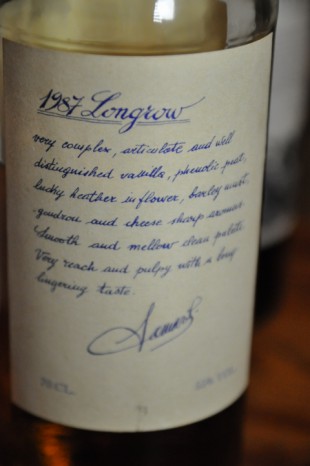 1987 Longrow
very complex, articulate and well
distinguished vanilla, phenolic peat,
lucky heather in flower, barley malt,
goudron and cheese sharp aromas.
Smooth and mellow clean palate.
Very reach and pulpy with a long
lingering taste.
70 CL.
VOL.